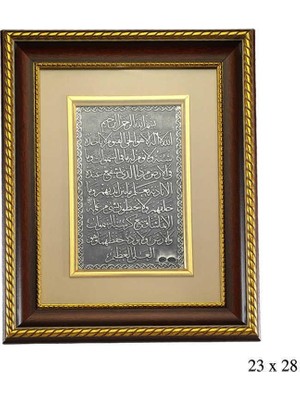 بسم الله الرحمن الرحيم
الله لا اله الا هو الحي القيوم لا تأخذه
سنة ولا نوم له ما في السموات وما
في الارض من ذا الذي يشفع عنده
الا باذنه يعلم ما بين ايديهم وما
خلفهم ولا يحيطون بشيء من علمه
الا بما شاء وسع كرسيه السموات
والارض ولا يؤده حفظهما وهو
العلي العظيم
23 x 28